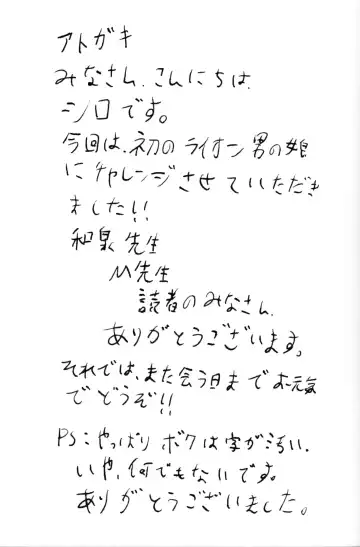 アトガキ
みなさん、こんにちは、
シロです。
今回は、初のライオン男の娘
にチャレンジさせていただき
ました!!
和泉先生
M先生
読者のみなさん
ありがとうございます。
それでは、また会う日までお元気
でどうぞ!!
PS:やっぱりボクは字が汚い、
いや、何でもないです。
ありがとうございました。